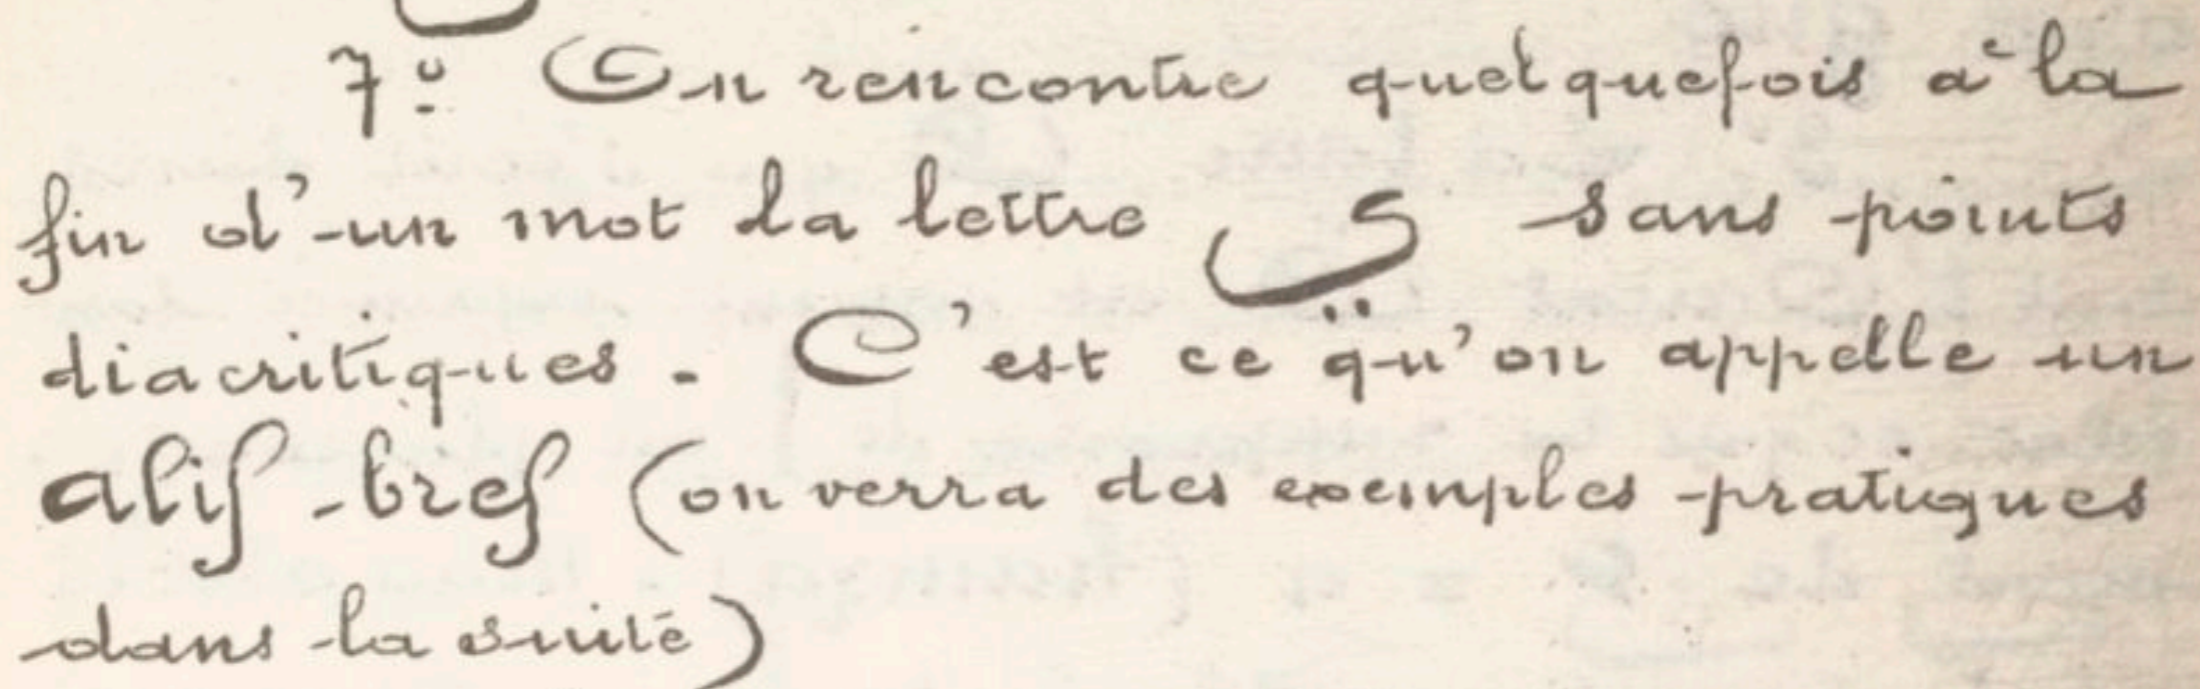 7º On rencontre quelquefois à la
fin d'un mot la lettre ي sans points
diacritiques. C'est ce qu'on appelle un
alif-bref (on verra des exemples pratiques
dans la suite)